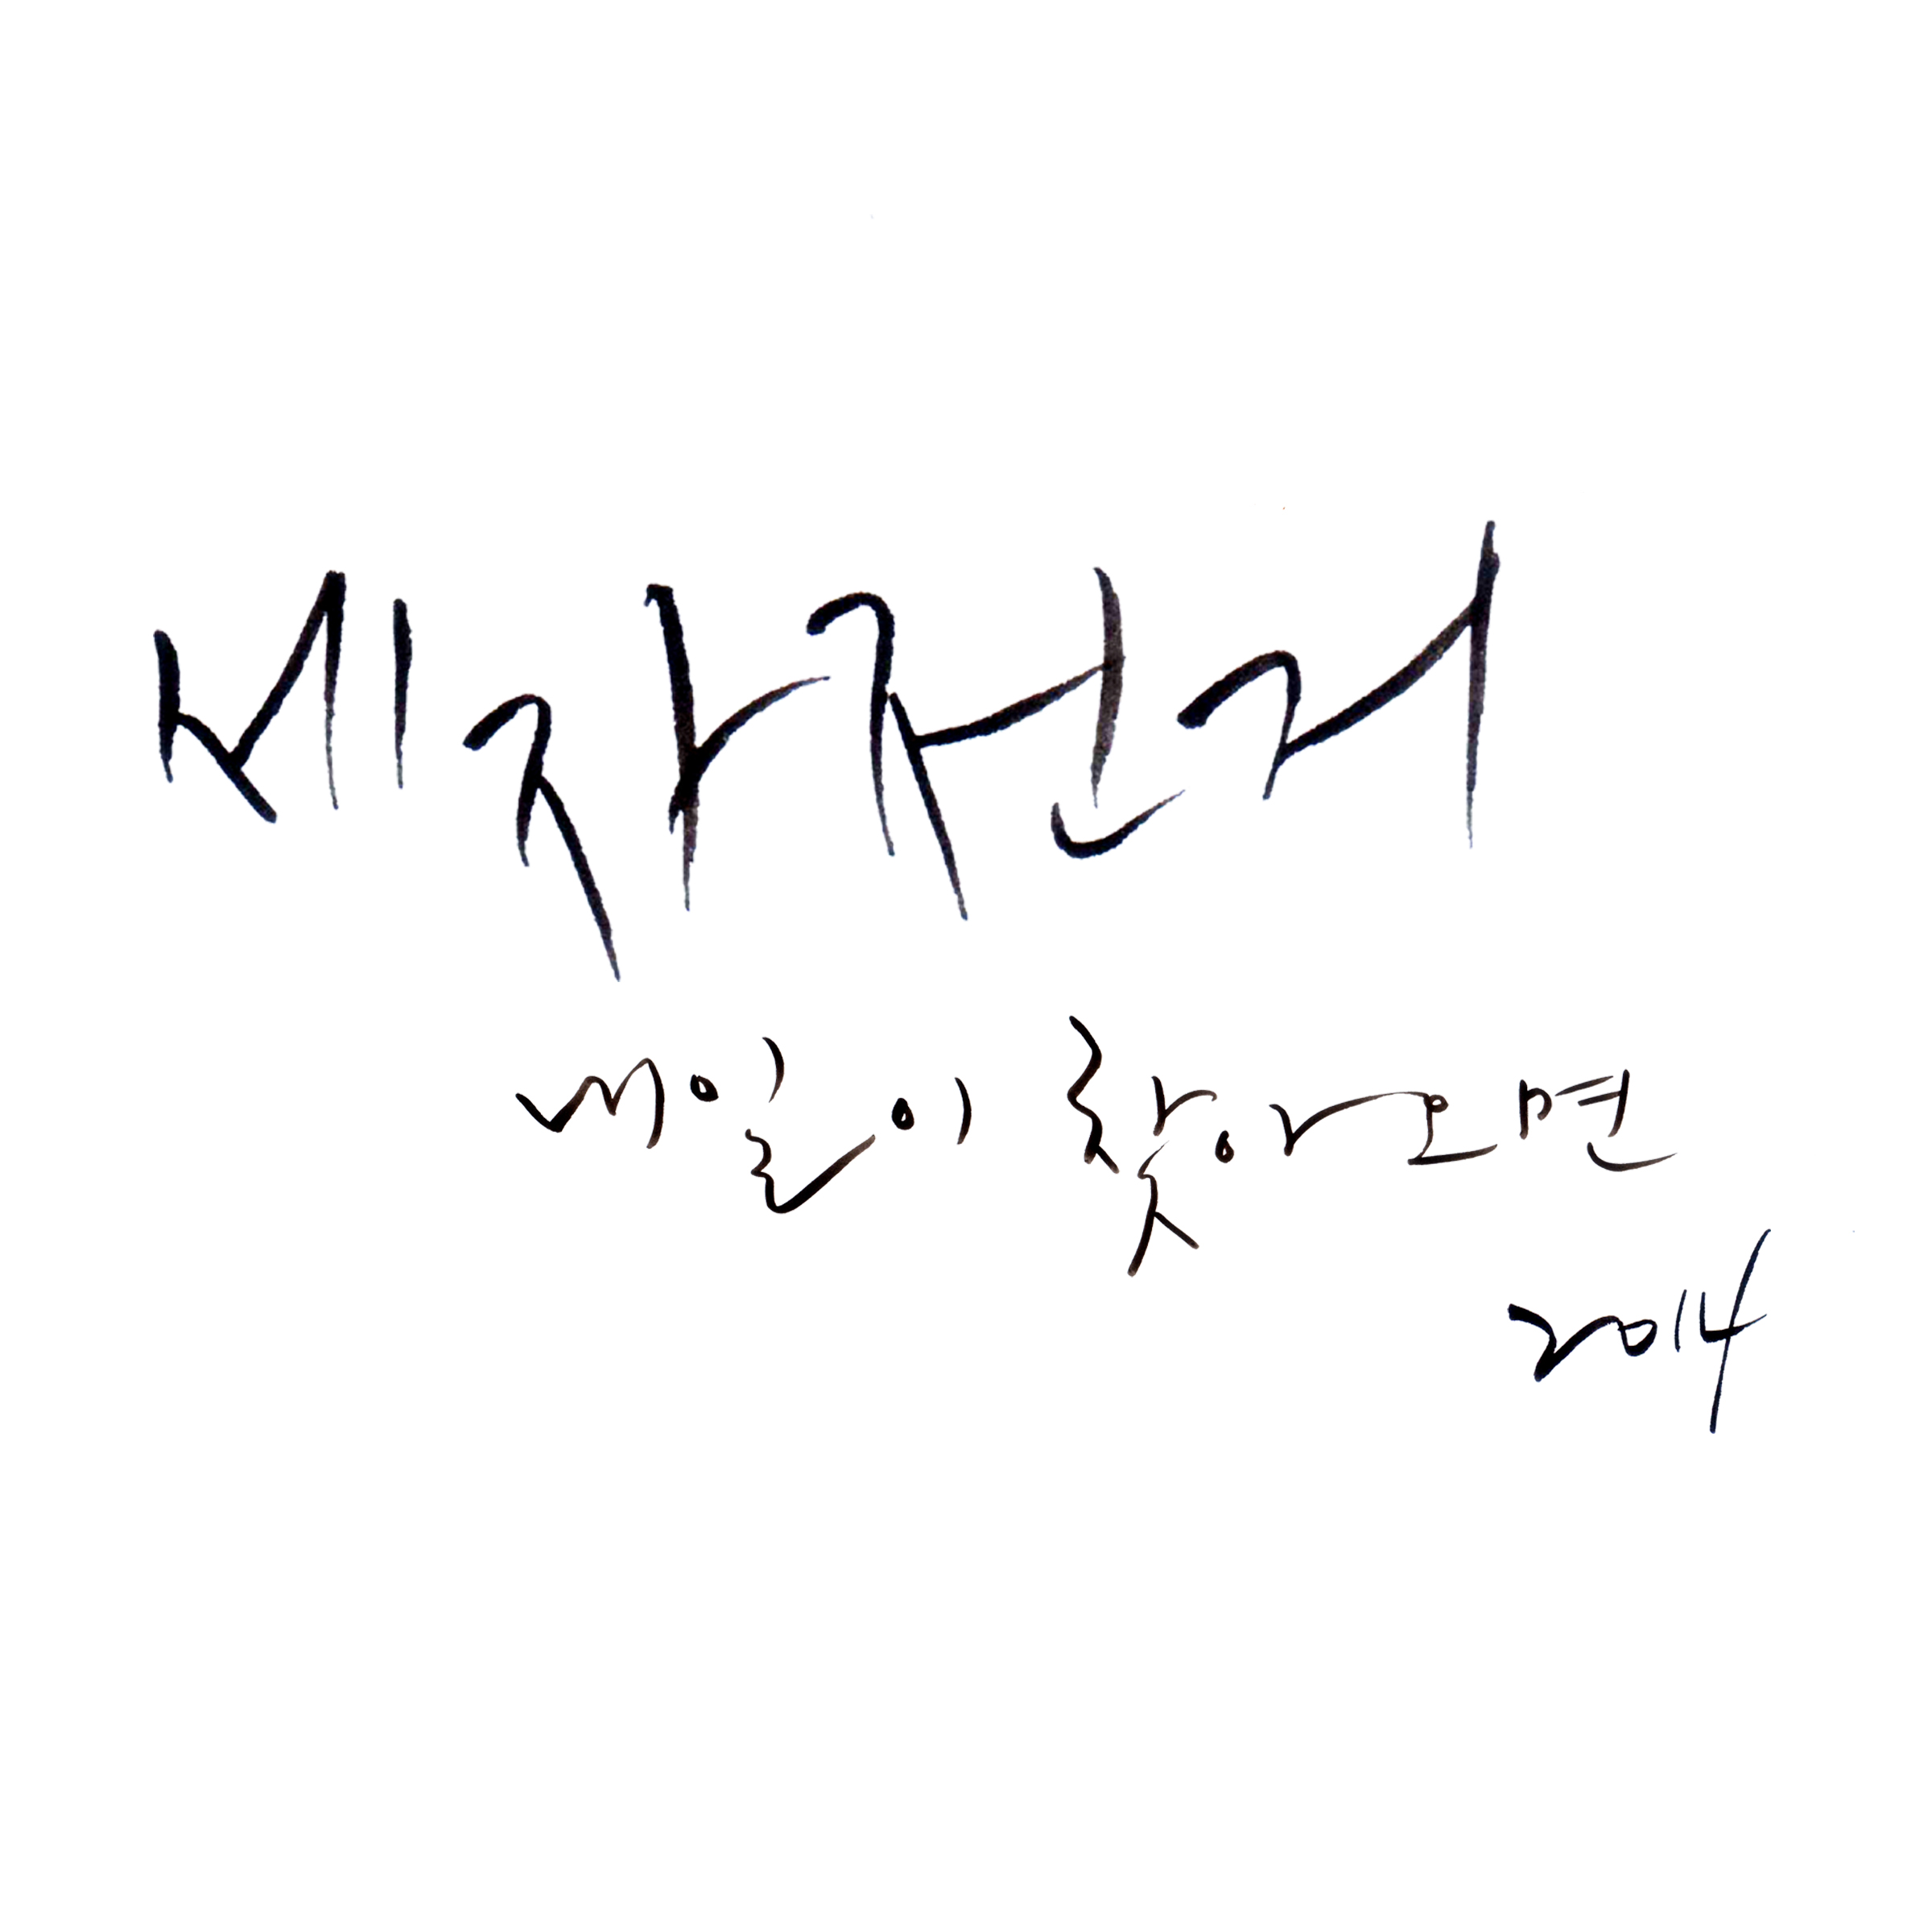 세자전거
내일이 찾아오면
2014